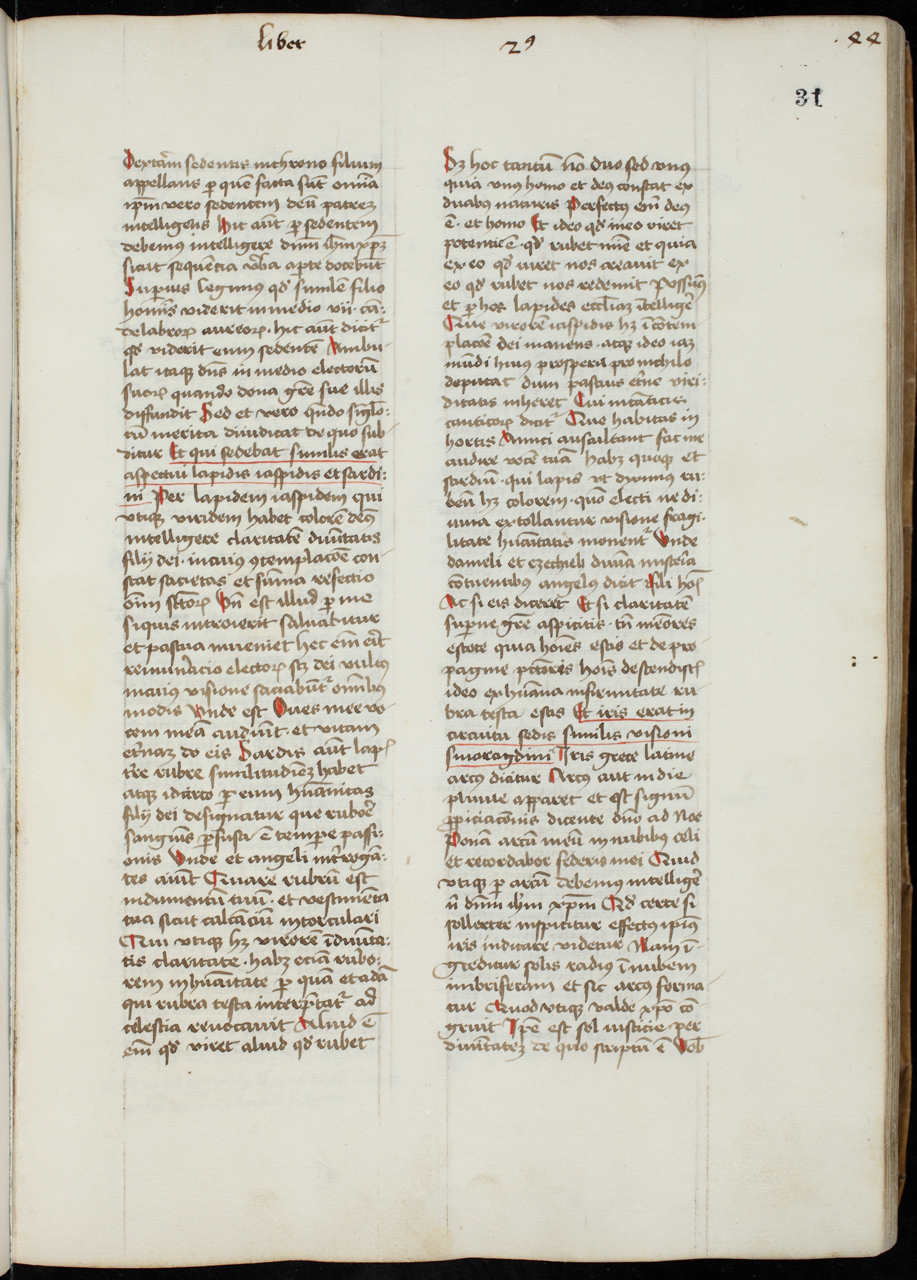 liber 2ꝰ
44
31
Dextram sedentis in throno filium
appellans ꝑ quē facta sūt omīa
ip̄m vero sedentem deū patrez
intelligens Hic aūt ꝑ sedentem
debemus intelligere dnm̄ ihm̄ xpm̄
sicut sequencia vb̄a aperte docebūt
Superius legimus qd̓ similē filio
homīs viderit in medio vii · can-
delabroꝝ aureoꝝ · hic aūt dicitᷣ
qd̓ viderit eum sedentē Ambu-
lat itaqꝫ dns in medio electorū
suoꝝ quando dona gr̄e sue illis
diffundit Sed et vero qn̄do singlo-
rū merita diiudicat de quo sub-
ditur Et qui sedebat similis erat
aspectui lapidis iaspidis et sardi-
ni Per lapidem iaspidem qui
vtiqꝫ viridem habet colorē debꝫ
intelligere claritatē diuītatis
filij dei · in cuius ꝯtemplacōe con-
stat sacietas et sūma refectio
oīm sctōꝝ Vn̄ est illud ꝑ me
si quis introierit saluabitur
et pascua inueniet hec em̄ erit
remunāacio electoꝝ scꝫ dei vultꝰ
in cuius visione saciabūtᷣ omībus
modis Vnde est Oues mee vo-
cem meā audiūt · et vitam
et̓naz do eis Sardis aūt lap̄
tr̄e rubre similitudiēz habet
atqꝫ idcirco ꝑ eum hūanitas
filij dei designatur que ruboꝛē
sanguīs ꝑfusa ē tempe passi-
onis Vnde et angeli int̓roga-
tes aiūt Quare rubrū est
indumentū tuū · et vestimēta
tua sicut calcanciū in torculari
Qui vtiqꝫ hꝫ viroꝛē ī diuīta-
tis claritate · habꝫ eciā rubo-
rem in hūaītate ꝑ quā et adā
qui rubra testa interp̄tatᷣ ad
celestia reuocauit Aliud ē
em̄ qd̓ viret aliud qd̓ rubet
Sꝫ hoc tantū nō duo sed vnus
quia vnus homo et deꝰ constat ex
duabus naturis Perfectꝰ em̄ deꝰ
ē · et homo Et ideo qd̓ in eo viret
potentie ē · qd̓ rubet mīe et quia
ex eo qd̓ viret nos creauit ex
eo qd̓ rubet nos redemit Possūꝰ
et ꝑ hos lapides eccl̄iaz ītelligē
Que viroꝛē iaspidis hꝫ ī cōtem-
placōe dei manens · atqꝫ ideo iaz
mūdi huiꝰ prospera pro nichilo
deputat dum pascuis et̓ne viri-
ditatis inheret Cui in cāticis
canticoꝝ dicitᷣ Que habitas in
hortis Amici auscultant fac me
audire vocē tuā habꝫ quoqꝫ et
sardinū · qui lapis vt diximus ru-
beū hꝫ colorem · quo electi ne di-
uina extollantur visione fragi-
litate hūanitatis monentᷣ Vnde
danieli et ezechieli diuīa mist̓ia
cōtuentibus angelus dicit Fili hoīs
Ac si eis diceret Et si claritatē
sup̄ne gr̄e aspicitis · tn̄ mēores
estote quia hoīes estis et de pro-
pagine pctōris hoīs descendistis
ideo ex hūana infirmitate ru-
bra testa estis Et iris erat in
circuitu sedis similis visioni
smoragdini Iris grece latine
arcꝰ dicitur Arcꝰ aut in die
pluuie apparet et est signū
ꝓpiciaciōnis dicente dnō ad Noe
Ponā arcū meū in nubibus celi
et recordabor federis mei Quid
vtiqꝫ ꝑ arcū debemus intelligē
ni dnm̄ ihm̄ xpm̄ Qd̓ certe si
sollerter inspicitur effectꝰ ipīus
iris indicare videtur Nam ī-
greditur solis radiꝰ ī nubem
imbriferam et sic arcꝰ forma-
tur Quod vtiqꝫ valde xpō cō-
gruit Ip̄e est sol iusticie per
diuītatez de quo scriptū ē Vob̄